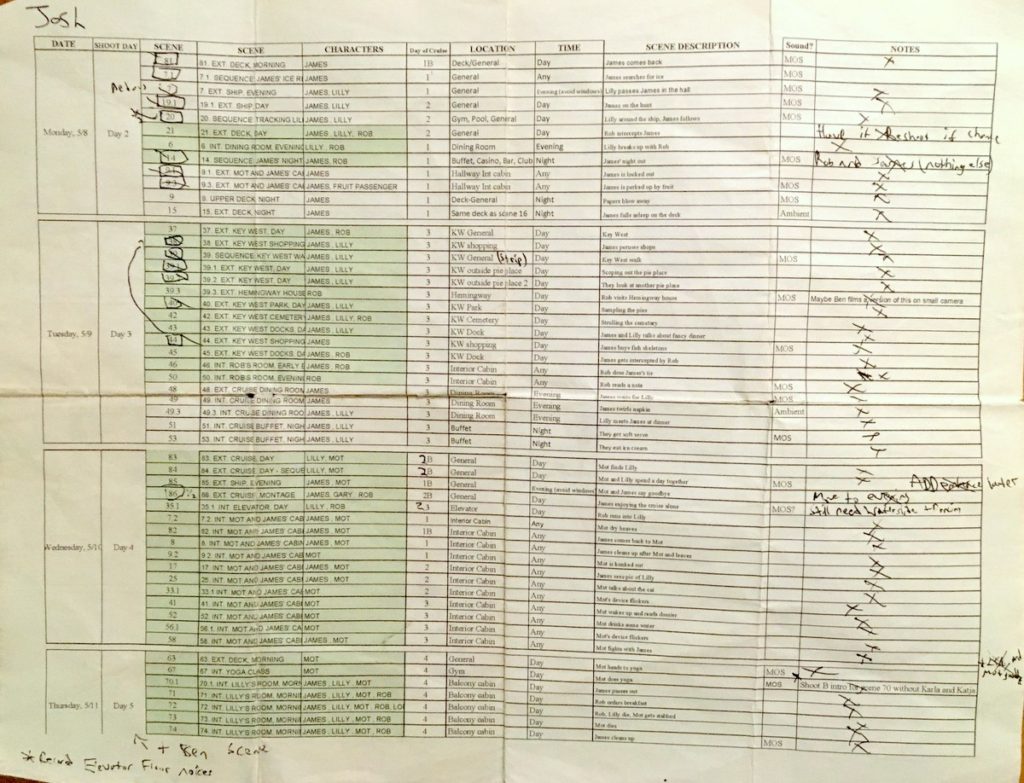 Josh
DATE SHOOT DAY SCENE SCENE CHARACTERS Day of Cruise LOCATION TIME SCENE DESCRIPTION Sound? NOTES
81 81. EXT. DECK, MORNING JAMES 1B Deck/General Day James comes back MOS X
7.1 7.1. SEQUENCE JAMES' ICE R JAMES 1 General Any James searches for ice MOS
7. EXT. SHIP, EVENING JAMES, LILLY 1 General Evening (avoid windows) Lilly passes James in the hall MOS X
19.1 19.1. EXT. SHIP, DAY JAMES 2 General Day James on the hunt MOS X
20 20. SEQUENCE TRACKING LIL JAMES, LILLY 2 Gym, Pool, General Day Lilly around the ship, James follows MOS X
Monday, 5/8 Day 2 21 21. EXT. DECK, DAY JAMES, LILLY, ROB 2 General Day Rob intercepts James Have it Reshoot if chance
6 6. INT. DINING ROOM, EVENING LILLY, ROB 1 Dining Room Evening Lilly breaks up with Rob X
14 14. SEQUENCE JAMES' NIGHT JAMES, ROB 1 Buffet, Casino, Bar, Club Night James' night out MOS Rob and James (nothing else)
9.1. EXT. MOT AND JAMES' CA JAMES 1 Hallway Int cabin Any James is locked out X
9.3. EXT. MOT AND JAMES' CA JAMES, FRUIT PASSENGER 1 Hallway Int cabin Any James is perked up by fruit MOS X
9 9. UPPER DECK, NIGHT JAMES 1 Deck-General Night Papers blow away MOS X
15 15. EXT. DECK, NIGHT JAMES 1 Same deck as scene 16 Night James falls asleep on the deck Ambient X
37 37. EXT. KEY WEST, DAY JAMES, ROB 3 KW General Day Key West X
38. EXT. KEY WEST SHOPPING JAMES, LILLY 3 KW shopping Day James peruses shops X
39. SEQUENCE KEY WEST WA JAMES, LILLY 3 KW General (Strip) Day Key West walk MOS X
39.1. EXT. KEY WEST, DAY JAMES, LILLY 3 KW outside pie place Day Scoping out the pie place X
39.2. EXT. KEY WEST, DAY JAMES, LILLY 3 KW outside pie place 2 Day They look at another pie place X
39.3 39.3. EXT. HEMINGWAY HOUSE ROB 3 Hemingway Day Rob visits Hemingway house MOS Maybe Ben films a version of this on small camera
40 40. EXT. KEY WEST PARK, DAY JAMES, LILLY 3 KW Park Day Sampling the pies X
42 42. EXT. KEY WEST CEMETERY JAMES, LILLY, ROB 3 KW Cemetery Day Strolling the cemetary
Tuesday, 5/9 Day 3 43 43. EXT. KEY WEST DOCKS, DA JAMES, LILLY 3 KW Dock Day James and Lilly talks about fancy dinner X
44 44. EXT. KEY WEST SHOPPING JAMES 3 KW shopping Day James buys fish skeletons MOS X
45 45. EXT. KEY WEST DOCKS, DA JAMES, ROB 3 KW Dock Day James gets intercepted by Rob X
46 46. INT. ROB'S ROOM, EARLY E JAMES, ROB 3 Interior Cabin Any Rob does James's tie X
50 50. INT. ROB'S ROOM, EVENING ROB 3 Interior Cabin Any Rob reads a note MOS X
48 48. EXT. CRUISE DINING ROOM JAMES 3 Dining Room Evening James waits for Lilly MOS X
49 49. INT. CRUISE DINING ROOM JAMES 3 Dining Room Evening James twirls napkin Ambient
49.3 49.3. INT. CRUISE DINING ROO JAMES, LILLY 3 Dining Room Evening Lilly meets James at dinner X
51 51. INT. CRUISE BUFFET, NIGH JAMES, LILLY 3 Buffet Night They get soft serve MOS X
53 53. INT. CRUISE BUFFET, NIGH JAMES, LILLY 3 Buffet Night They eat ice cream X
83 83. EXT. CRUISE, DAY LILLY, MOT 2B General Day Mot finds Lilly X
84 84. EXT. CRUISE, DAY - SEQUE LILLY, MOT 2B General Day Mot and Lilly spend a day together MOS X
85 85. EXT. SHIP, EVENING MOT, JAMES 1B General Evening (avoid windows) Mot and James say goodbye
86 86. EXT. CRUISE, MONTAGE JAMES, GARY, ROB 2B General Day James enjoying the cruise alone MOS?
35.1 35.1 INT. ELEVATOR, DAY LILLY, ROB 3 Elevator Day Rob runs into Lilly
7.2 7.2. INT. MOT AND JAMES' CAB MOT 1 Interior Cabin Any Mot dry heaves X
Wednesday, 5/10 Day 4 82 82. INT. MOT AND JAMES' CAB JAMES, MOT 1B Interior Cabin Any James comes back to Mot X
8 8. INT. MOT AND JAMES' CABIN JAMES, MOT 1 Interior Cabin Any James cleans up after Mot and leaves X
9.2 9.2. INT. MOT AND JAMES' CAB MOT 1 Interior Cabin Any Mot is honked out X
17 17. INT. MOT AND JAMES' CAB JAMES, MOT 2 Interior Cabin Any James sees pic of Lilly X
25 25. INT. MOT AND JAMES' CAB JAMES, MOT 2 Interior Cabin Any Mot talks about the cat X
33.1 33.1 INT. MOT AND JAMES' CA MOT 2 Interior Cabin Any Mot's device flickers X
41 41. INT. MOT AND JAMES' CABI MOT 3 Interior Cabin Any X
52 52. INT. MOT AND JAMES' CABI MOT 3 Interior Cabin Any Mot drinks some water X
56.1 56.1. INT. MOT AND JAMES' CAB MOT 3 Interior Cabin Any Mot's device flickers X
58 58. INT. MOT AND JAMES' CABI JAMES, MOT 3 Interior Cabin Any Mot fights with James X
63 63. EXT. DECK, MORNING MOT 4 General Day Mot heads to yoga
67 67. INT. YOGA CLASS MOT 4 Gym Day Mot does yoga MOS X
70.1 70.1. INT. LILLY'S ROOM, MORN JAMES, LILLY, MOT 4 Balcony cabin Day James passes out MOS Shoot B intro for scene 70 without Karla and Katja
71 71. INT. LILLY'S ROOM, MORNI JAMES, LILLY, MOT, ROB 4 Balcony cabin Day Rob orders breakfast X
Thursday, 5/11 Day 5 72 72. INT. LILLY'S ROOM, MORNI JAMES, LILLY, MOT, ROB, LO 4 Balcony cabin Day Rob, Lilly die, Mot gets stabbed X
73 73. INT. LILLY'S ROOM, MORNI JAMES, LILLY, MOT, ROB 4 Balcony cabin Day Mot dies X
74 74. INT. LILLY'S ROOM, MORNI JAMES, LILLY, MOT, ROB 4 Balcony cabin Day James cleans up MOS X
+ Ben Scene
* Record Elevator Floor noises